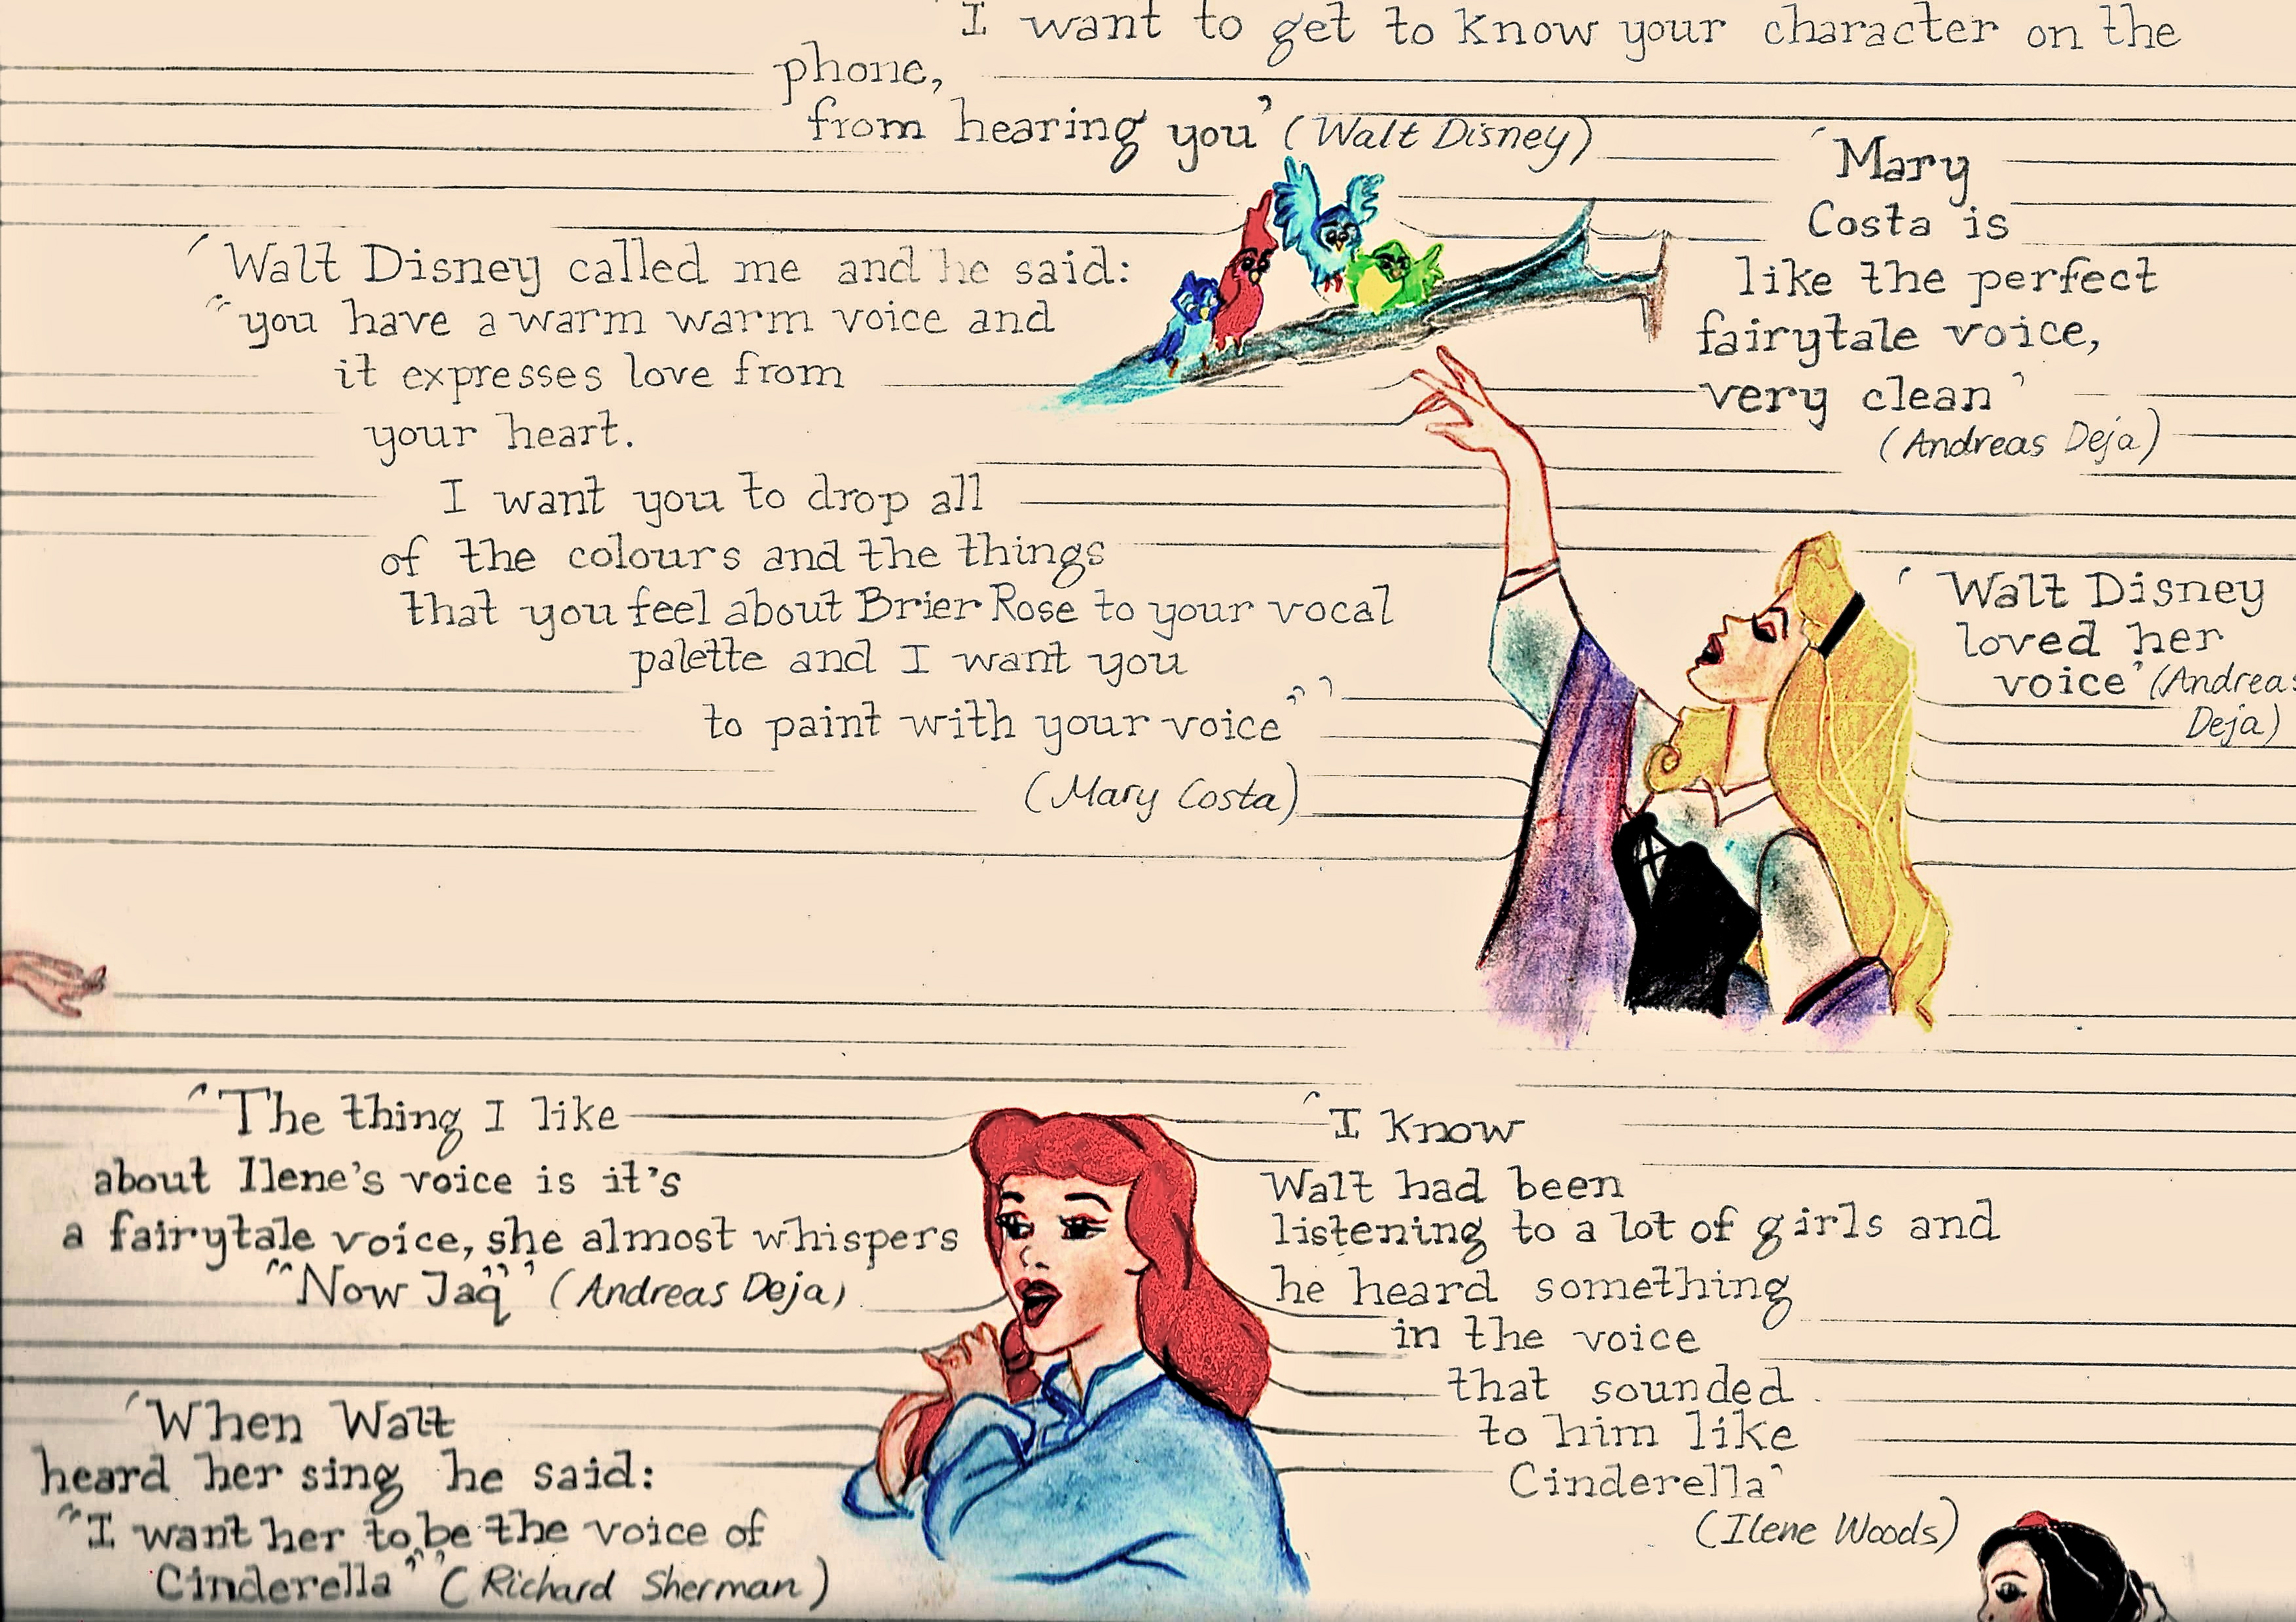 I want to get to know your character on the
phone,
from hearing you' (Walt Disney)
'Walt Disney called me and he said:
"you have a warm warm voice and
it expresses love from
your heart.
I want you to drop all
of the colours and the things
that you feel about Brier Rose to your vocal
palette and I want you
to paint with your voice"'
(Mary Costa)
'Mary
Costa is
like the perfect
fairytale voice,
very clean'
(Andreas Deja)
'Walt Disney
loved her
voice' (Andreas
Deja)
'The thing I like
about Ilene's voice is it's
a fairytale voice, she almost whispers
"Now Jaq"' (Andreas Deja)
'When Walt
heard her sing he said:
"I want her to be the voice of
Cinderella"' (Richard Sherman)
'I know
Walt had been
listening to a lot of girls and
he heard something
in the voice
that sounded
to him like
Cinderella'
(Ilene Woods)